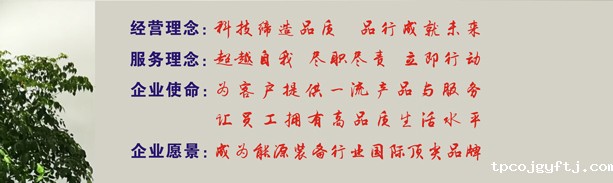 经营理念：科技缔造品质 品行成就未来
服务理念：超越自我 尽职尽责 立即行动
企业使命：为客户提供一流产品与服务
让员工拥有高品质生活水平
企业愿景：成为能源装备行业国际顶尖品牌
tpcojgyftj.com